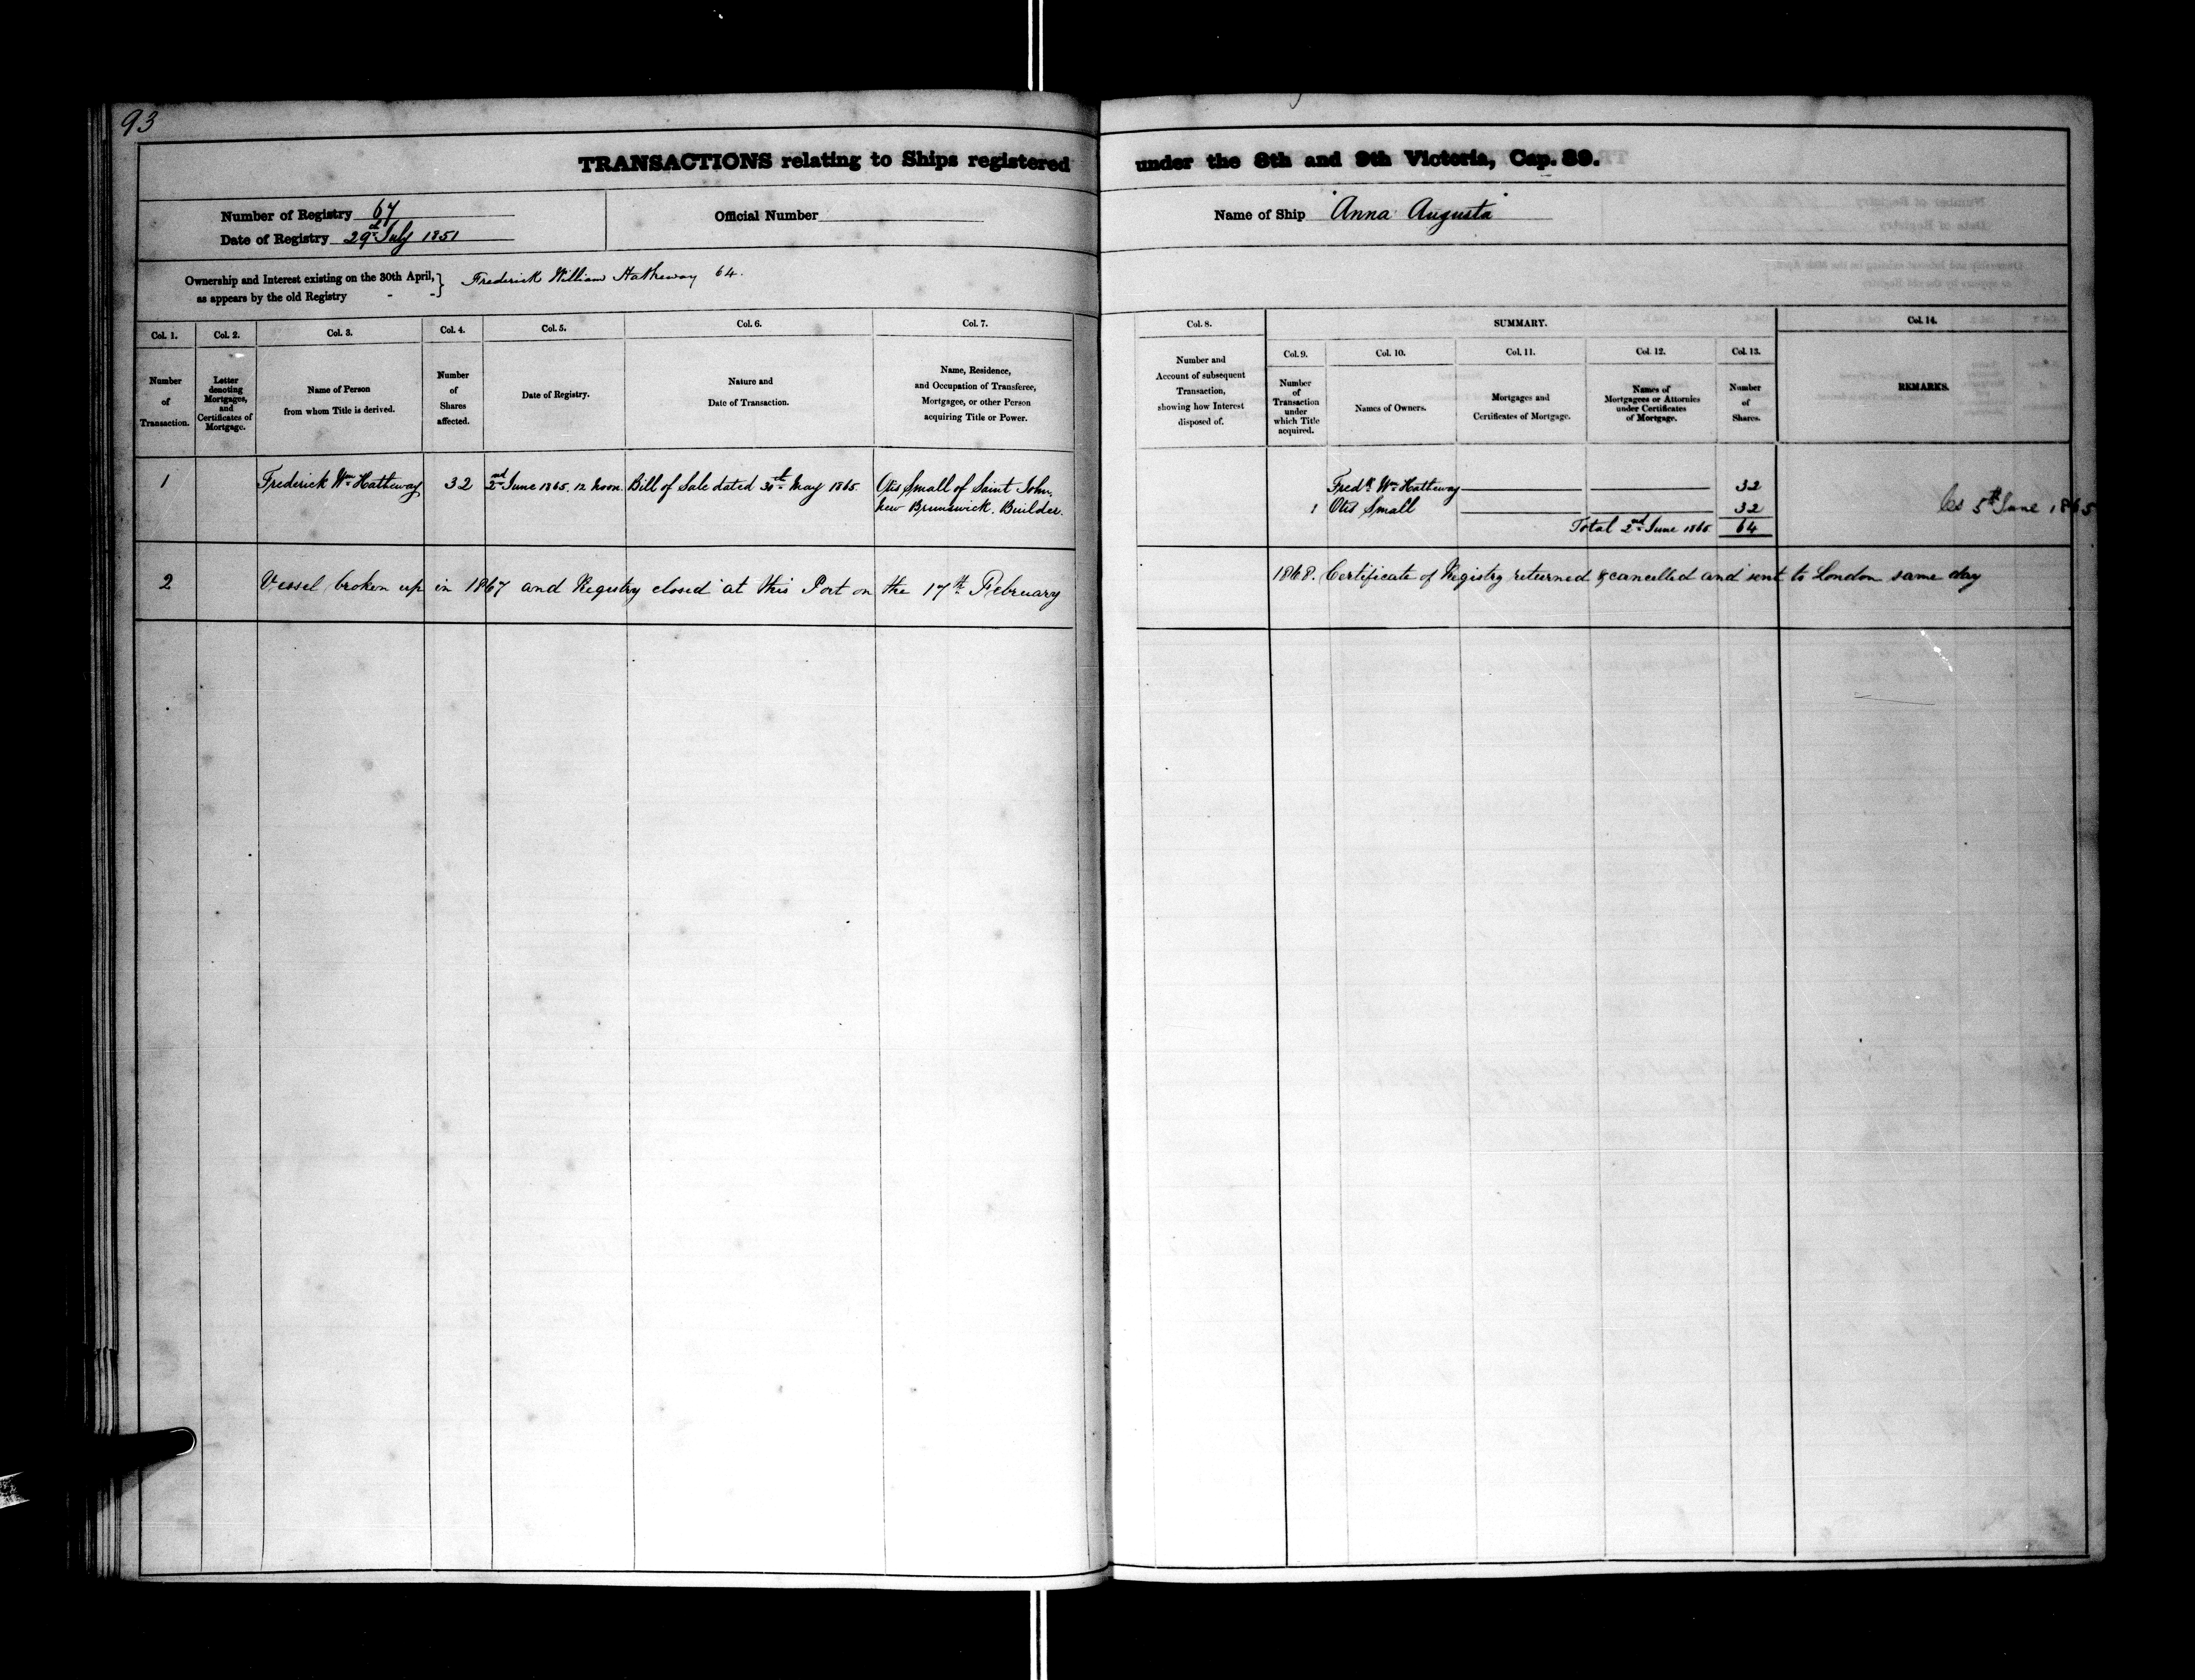 93
TRANSACTIONS relating to Ships registered under the 8th and 9th Victoria, Cap. 89.
Number of Registry 67
Date of Registry 29th July 1851
Official Number
Name of Ship "Anna Augusta"
Ownership and Interest existing on the 30th April, } Frederick William Hatheway 64.
as appears by the old Registry - -
Col. 1.
Number
of
Transaction.
Col. 2.
Letter
denoting
Mortgages,
and
Certificates of
Mortgage.
Col. 3.
Name of Person
from whom Title is derived.
Col. 4.
Number
of
Shares
affected.
Col. 5.
Date of Registry.
Col. 6.
Nature and
Date of Transaction.
Col. 7.
Name, Residence,
and Occupation of Transferee,
Mortgagee, or other Person
acquiring Title or Power.
Col. 8.
Number and
Account of subsequent
Transaction,
showing how Interest
disposed of.
SUMMARY.
Col. 9.
Number
of
Transaction
under
which Title
acquired.
Col. 10.
Names of Owners.
Col. 11.
Mortgages and
Certificates of Mortgage.
Col. 12.
Names of
Mortgagees or Attornies
under Certificates
of Mortgage.
Col. 13.
Number
of
Shares.
Col. 14.
REMARKS.
1 Frederick Wm Hatheway 32 2nd June 1865. 12 Noon. Bill of Sale dated 30th May 1865. Otis Small of Saint John,
New Brunswick. Builder.
Fredk Wm Hatheway 32
1 Otis Small 32
Total 2nd June 1865 64
5th June 1865
2 Vessel broken up in 1867 and Registry closed at this Port on the 17th February 1868. Certificate of Registry returned & cancelled and sent to London same day